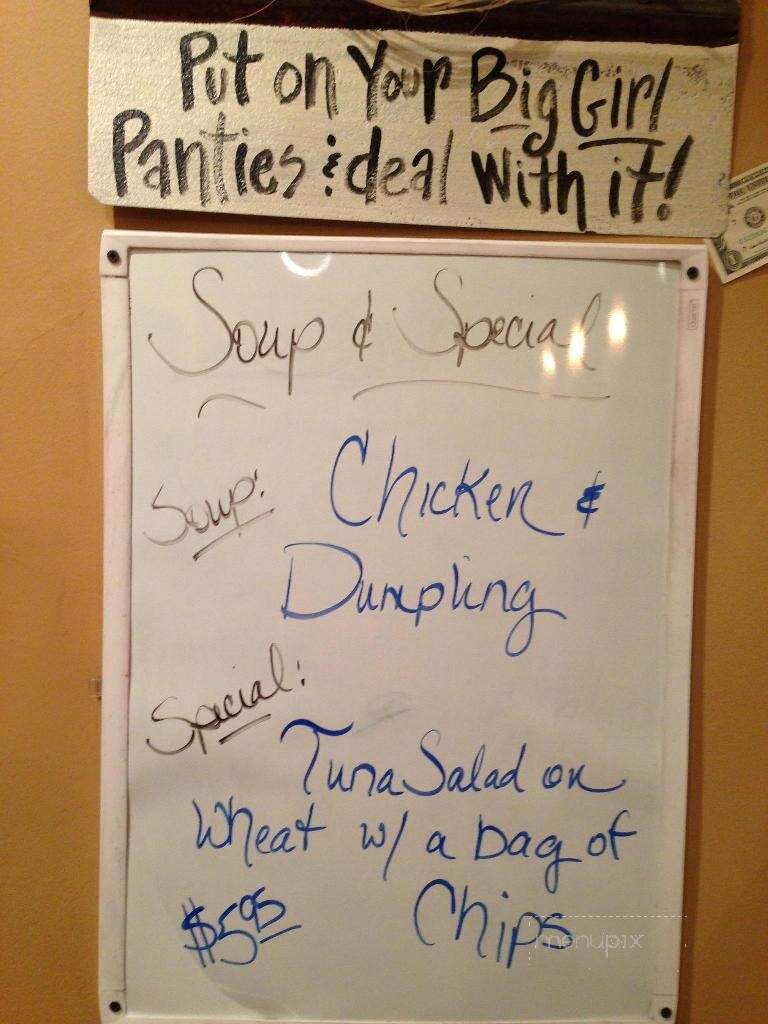 Put on Your Big Girl
Panties & deal with it!
Soup & Special
Soup: Chicken &
Dumpling
Special:
Tuna Salad on
Wheat w/ a bag of
$5.95 Chips
menupix